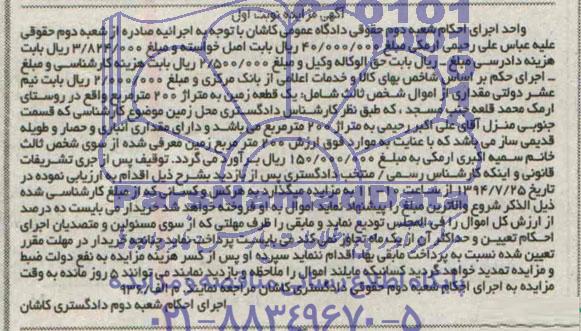 آگهی مزایده نوبت اول
واحد اجرای احکام شعبه دوم حقوقی دادگاه عمومی کاشان با توجه به اجرائیه صادره از شعبه دوم حقوقی
علیه عباس علی رحیمی آرمکی مبلغ ۴۰/۰۰۰/۰۰۰ ریال بابت اصل خواسته و مبلغ ۳/۸۲۴/۰۰۰ ریال بابت
هزینه دادرسی مبلغ ـ ریال بابت حق الوکاله وکیل و مبلغ ۲/۵۰۰/۰۰۰ ریال بابت هزینه کارشناسی و مبلغ
ـ اجرای حکم بر اساس شاخص بهای کالا و خدمات اعلامی از بانک مرکزی و مبلغ ۲/۰۰۰/۰۰۰ ریال بابت نیم
عشر دولتی مقداری از اموال شخص ثالث شامل: یک قطعه زمین به متراژ ۲۰۰ مترمربع واقع در روستای
ارمک محمد قلعه جنب مسجد، که طبق نظر کارشناس دادگستری محل زمین موضوع کارشناسی که قسمت
جنوبی منزل آقای علی اکبر رحیمی به متراژ ۲۰۰ مترمربع می باشد و دارای مقداری انباری و حصار و طویله
قدیمی ساز می باشد که با عنایت به موارد فوق ارزش ۲۰۰ متر مربع زمین معرفی شده از سوی شخص ثالث
خانم سمیه اکبری ارمکی به مبلغ ۱۵۰/۰۰۰/۰۰۰ ریال برآورد می گردد. توقیف پس از اجری تشریفات
قانونی و اینکه کارشناس رسمی / منتخب دادگستری پس از بازدید بشرح ذیل اقدام به ارزیابی نموده در
تاریخ ۱۳۹۴/۷/۲۵ از ساعت ۱۰ به مزایده میگذارد به هرکس و کسانی که از مبلغ کارشناسی شده
ذیل الذکر شروع و بالاترین مبلغ را پیشنهاد نماید اموال به او فروخته خواهد شد خریدار می بایست ده درصد
از ارزش کل اموال را فی المجلس تودیع نماید و مابقی را ظرف مهلتی که از سوی مسئولین و متصدیان اجرای
احکام تعیین و حداکثر آن از یک ماه تجاوز نمی کند می بایست پرداخت نماید چنانچه خریدار در مهلت مقرر
تعیین شده نسبت به پرداخت مابقی بها اقدام ننماید سپرده او پس از کسر هزینه مزایده به نفع دولت ضبط
و مزایده تمدید خواهد گردید کسانیکه مایلند اموال را ملاحظه و بازدید نمایند می توانند ۵ روز مانده به وقت
مزایده به اجرای احکام شعبه دوم حقوقی دادگستری کاشان مراجعه نمایند.
اجرای احکام شعبه دوم دادگستری کاشان
ParsNamadData
۰۲۱-۸۸۳۴۹۶۷۰-۵